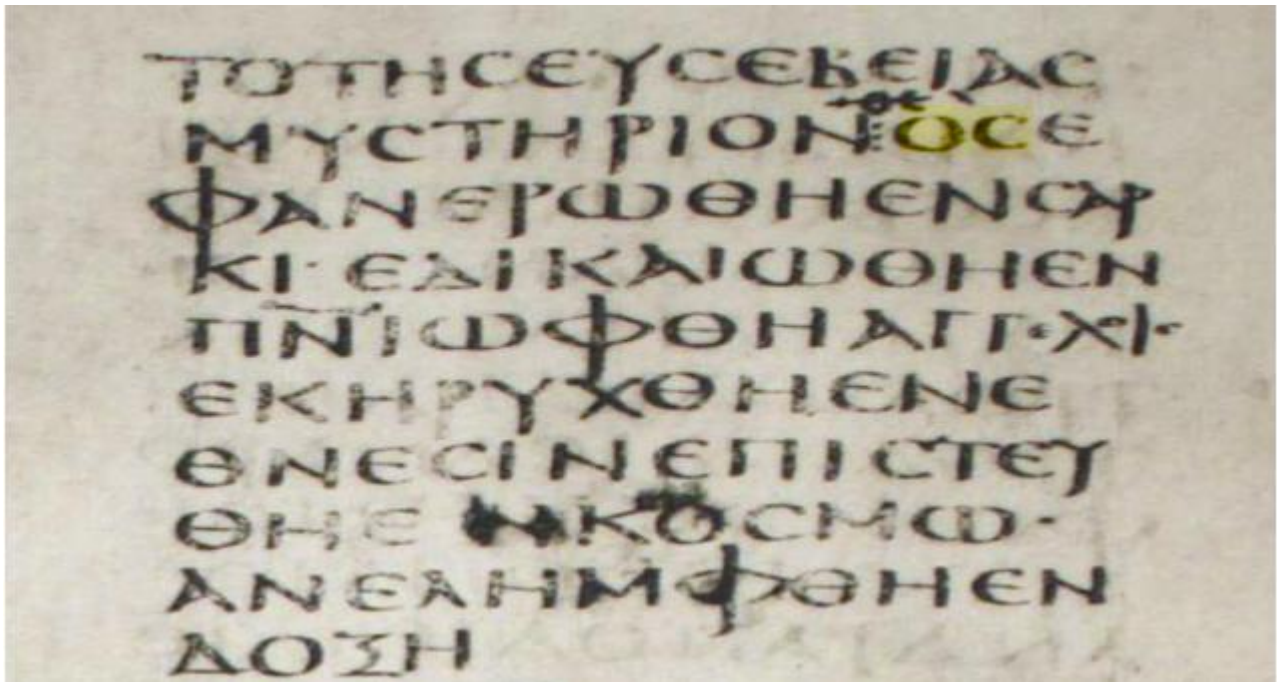 ΤΟΤΗϹΕΥϹΕΒΕΙΑϹ
ΜΥϹΤΗΡΙΟΝΟϹΕ
ΦΑΝΕΡΩΘΗΕΝϹΑΡ
ΚΙ·ΕΔΙΚΑΙΩΘΗΕΝ
Π̅Ν̅Ι̅ΩΦΘΗΑΓΓΕΛΟΙϹ
ΕΚΗΡΥΧΘΗΕΝΕ
ΘΝΕϹΙΝΕΠΙϹΤΕΥ
ΘΗΕΝΚΟϹΜΩ·
ΑΝΕΛΗΜΦΘΗΕΝ
ΔΟΞΗ